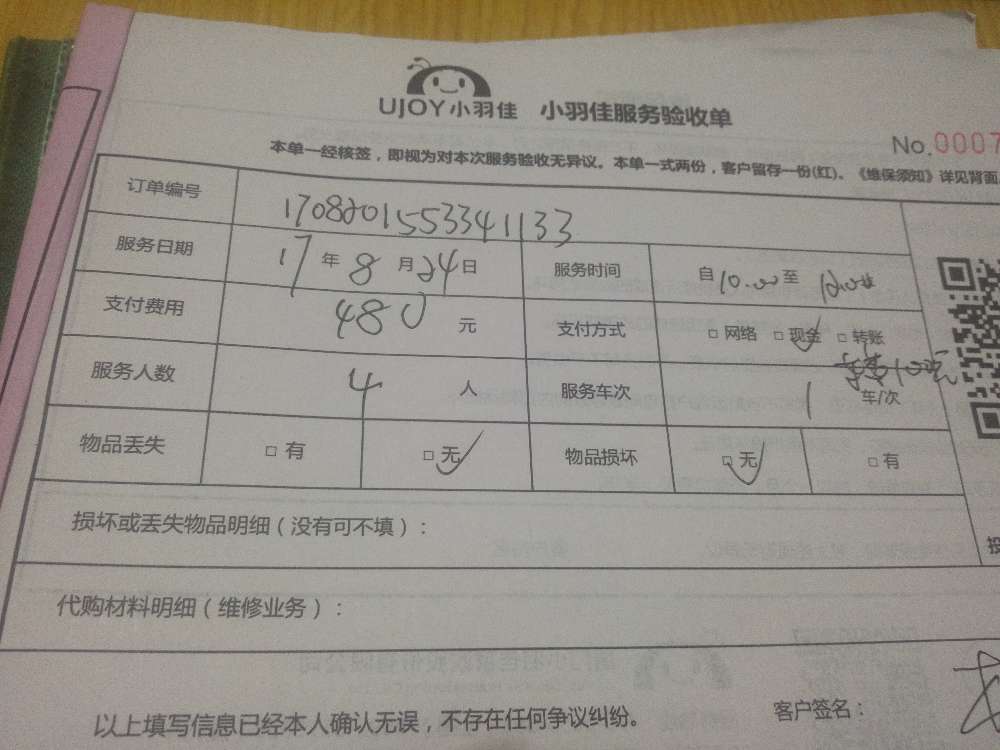 UJOY小羽佳 小羽佳服务验收单
No.0007
本单一经核签，即视为对本次服务验收无异议。本单一式两份，客户留存一份(红)。《维保须知》详见背面
订单编号 1708201553341133
服务日期 17年8月24日 服务时间 自10.00至
支付费用 480元 支付方式 □网络 □现金 □转账
服务人数 4人 服务车次 1车/次
100元
物品丢失 □有 □无 物品损坏 □无 □有
损坏或丢失物品明细（没有可不填）：
代购材料明细（维修业务）：
以上填写信息已经本人确认无误，不存在任何争议纠纷。 客户签名：